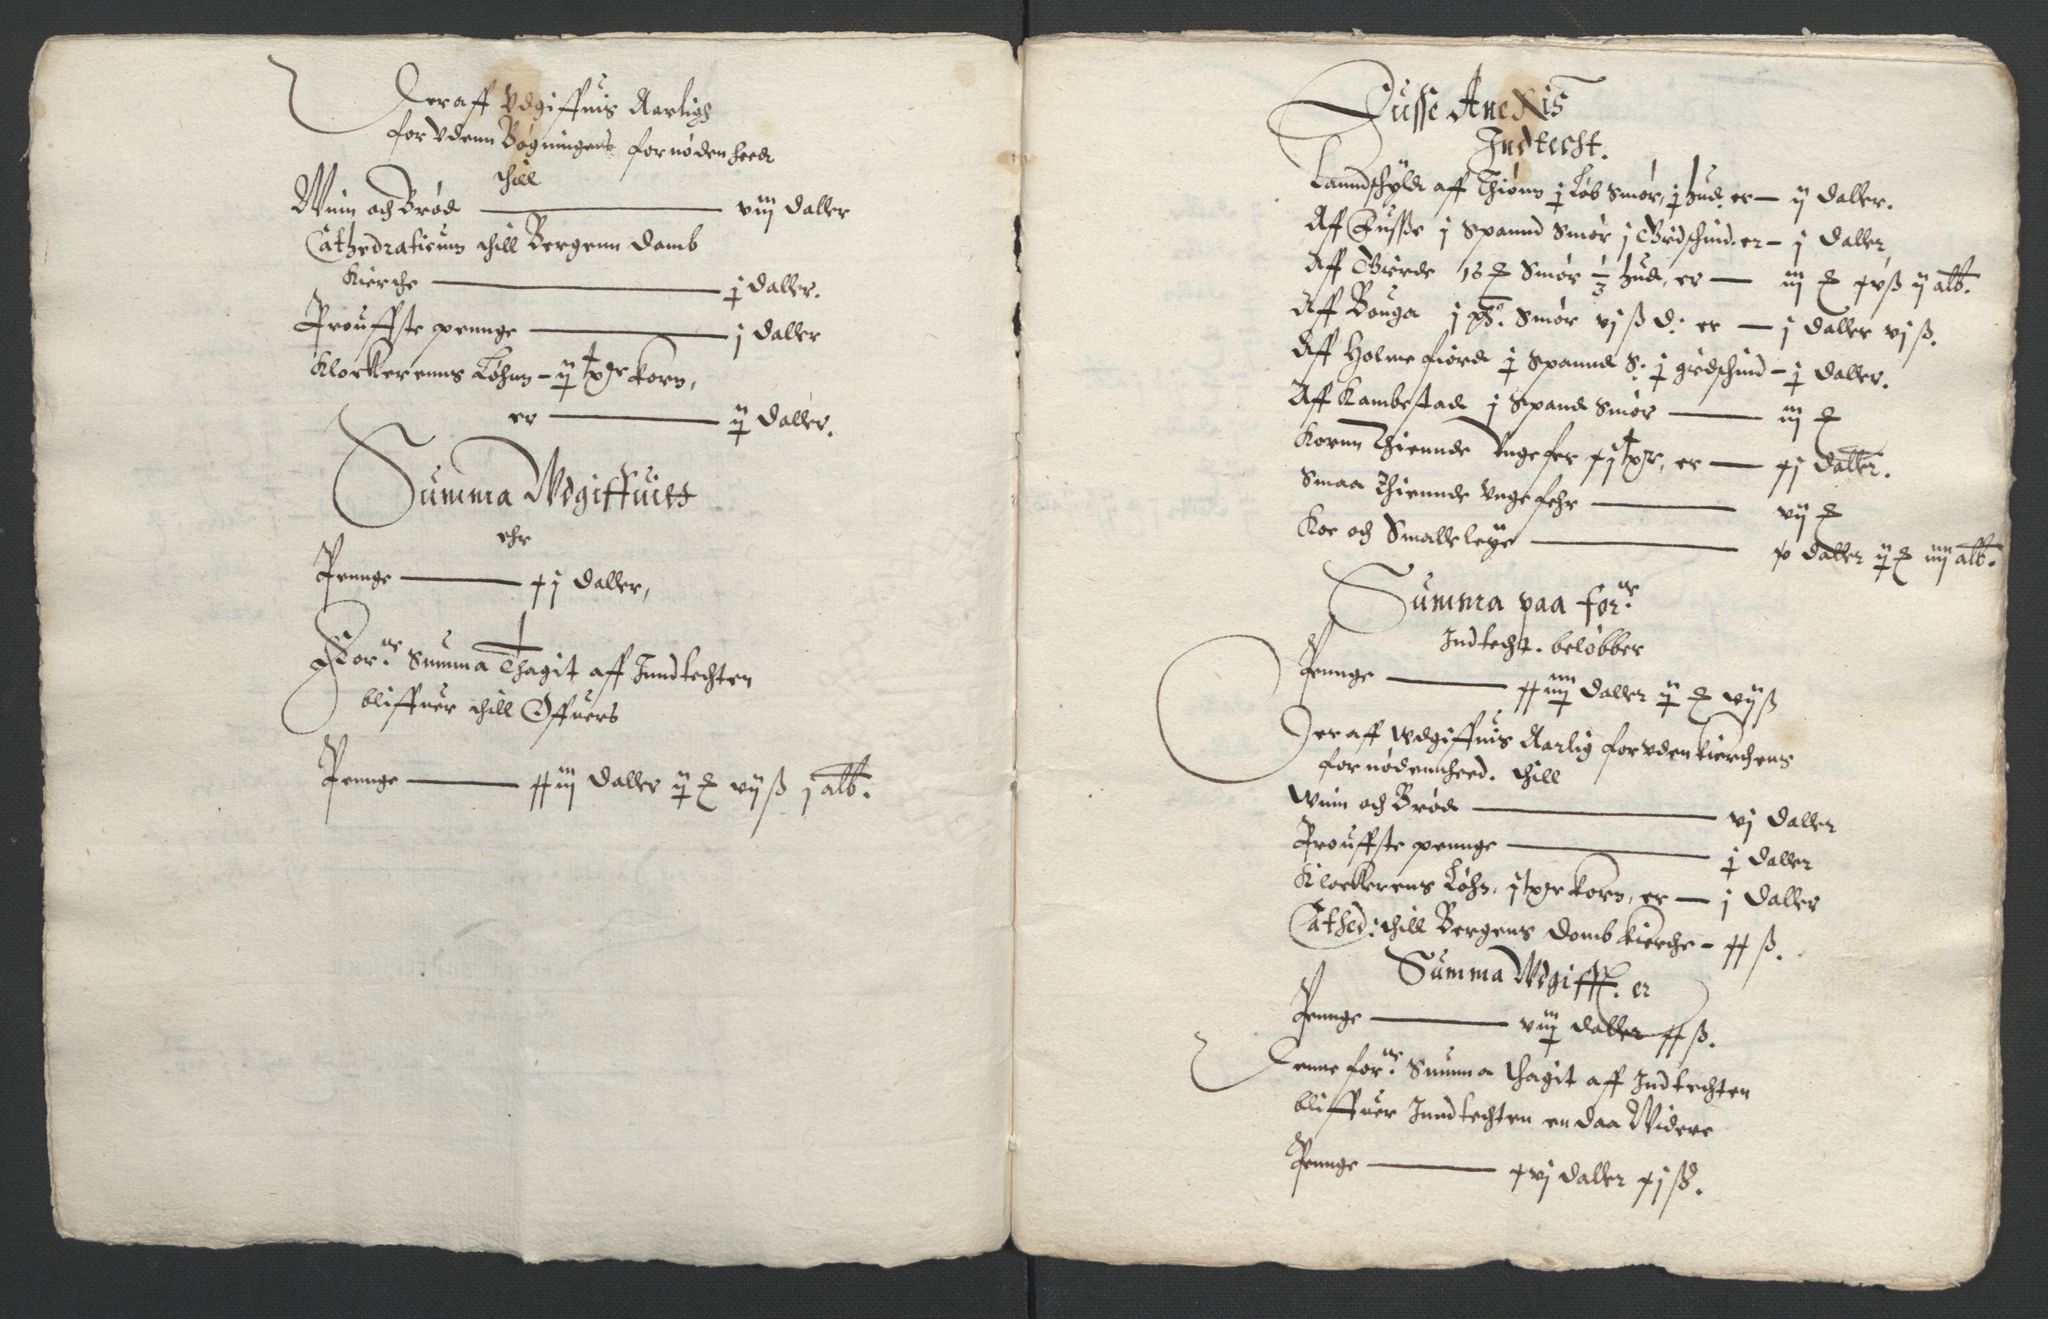 Deraff Vdgiffuis Aarligh
forudenn Bøgningens fornødenheed
thill
Wiin och Brød — viij daller
Cathedraticum thill Bergenn Domb
Kierche — j daller.
Prouffste pennge — j daller
Klockerenns Løhnn — ij tøn korn,
er — ij daller.
Summa Wdgiffuies
ehr
Pennge — xj daller,
For.ne Summa Thagit aff Inndtechten
bliffuer thill Øffuers
Pennge — xxiij daller ij ℔ vij ß j alb.
Fusse Anexis
Indtecht.
Lanndschyld aff Thiønn j Løb Smør, j hud, er — ij daller.
Aff Fusße j Spannd Smør j giedschind. er — j daller
Aff Gierde 16 ℔ Smør ½ hud, er — iij ℔ xvß ij alb.
Aff Bouga j pd. Smør vj ß d: er — j daller vj ß.
Aff Holmefiord j Spannd S: j giedschind — j daller.
Aff Kambestad j Spand Smør — iij ℔
Kornn Thiennde Vngefer xj tøn, er — xj daller.
Smaa Thiennde Vngefehr — vij ℔
Koe och Smalleleye — v daller ij ℔ iiij alb.
Summa paa for.ne
Indtecht. beløbber
Pennge — xxiiij daller ij ℔ vij ß
Deraff wdgiffuis Aarlig foruden kierchens
fornødennheed. thill
Wiin och Brød — vj daller
Prouffste pennge — j daller
Klockerens Løhn, j tøn korn, er — j daller
Cathed: thill Bergens Domb kierche — xx ß.
Summa Wdgifft. er
Pennge — viij daller xx ß.
Denne for.ne Summa thagit aff Indtechten
bliffuer Inndtechten endaa Widere
Pennge — xvj daller xj ß.